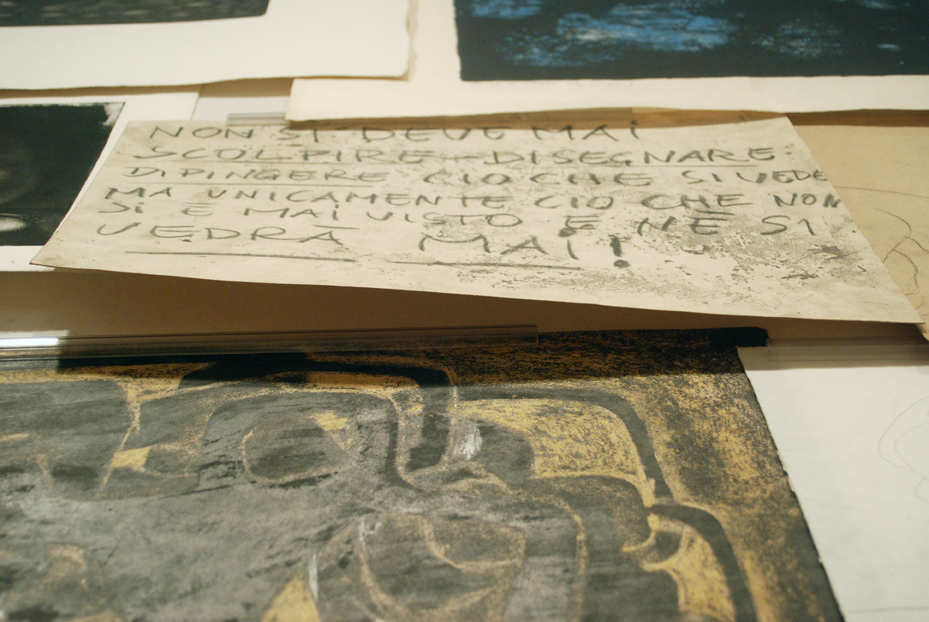 NON SI DEVE MAI
SCOLPIRE - DISEGNARE -
DIPINGERE CIO CHE SI VEDE
MA UNICAMENTE CIO CHE NON
SI È MAI VISTO E NÈ SI
VEDRÀ MAI!